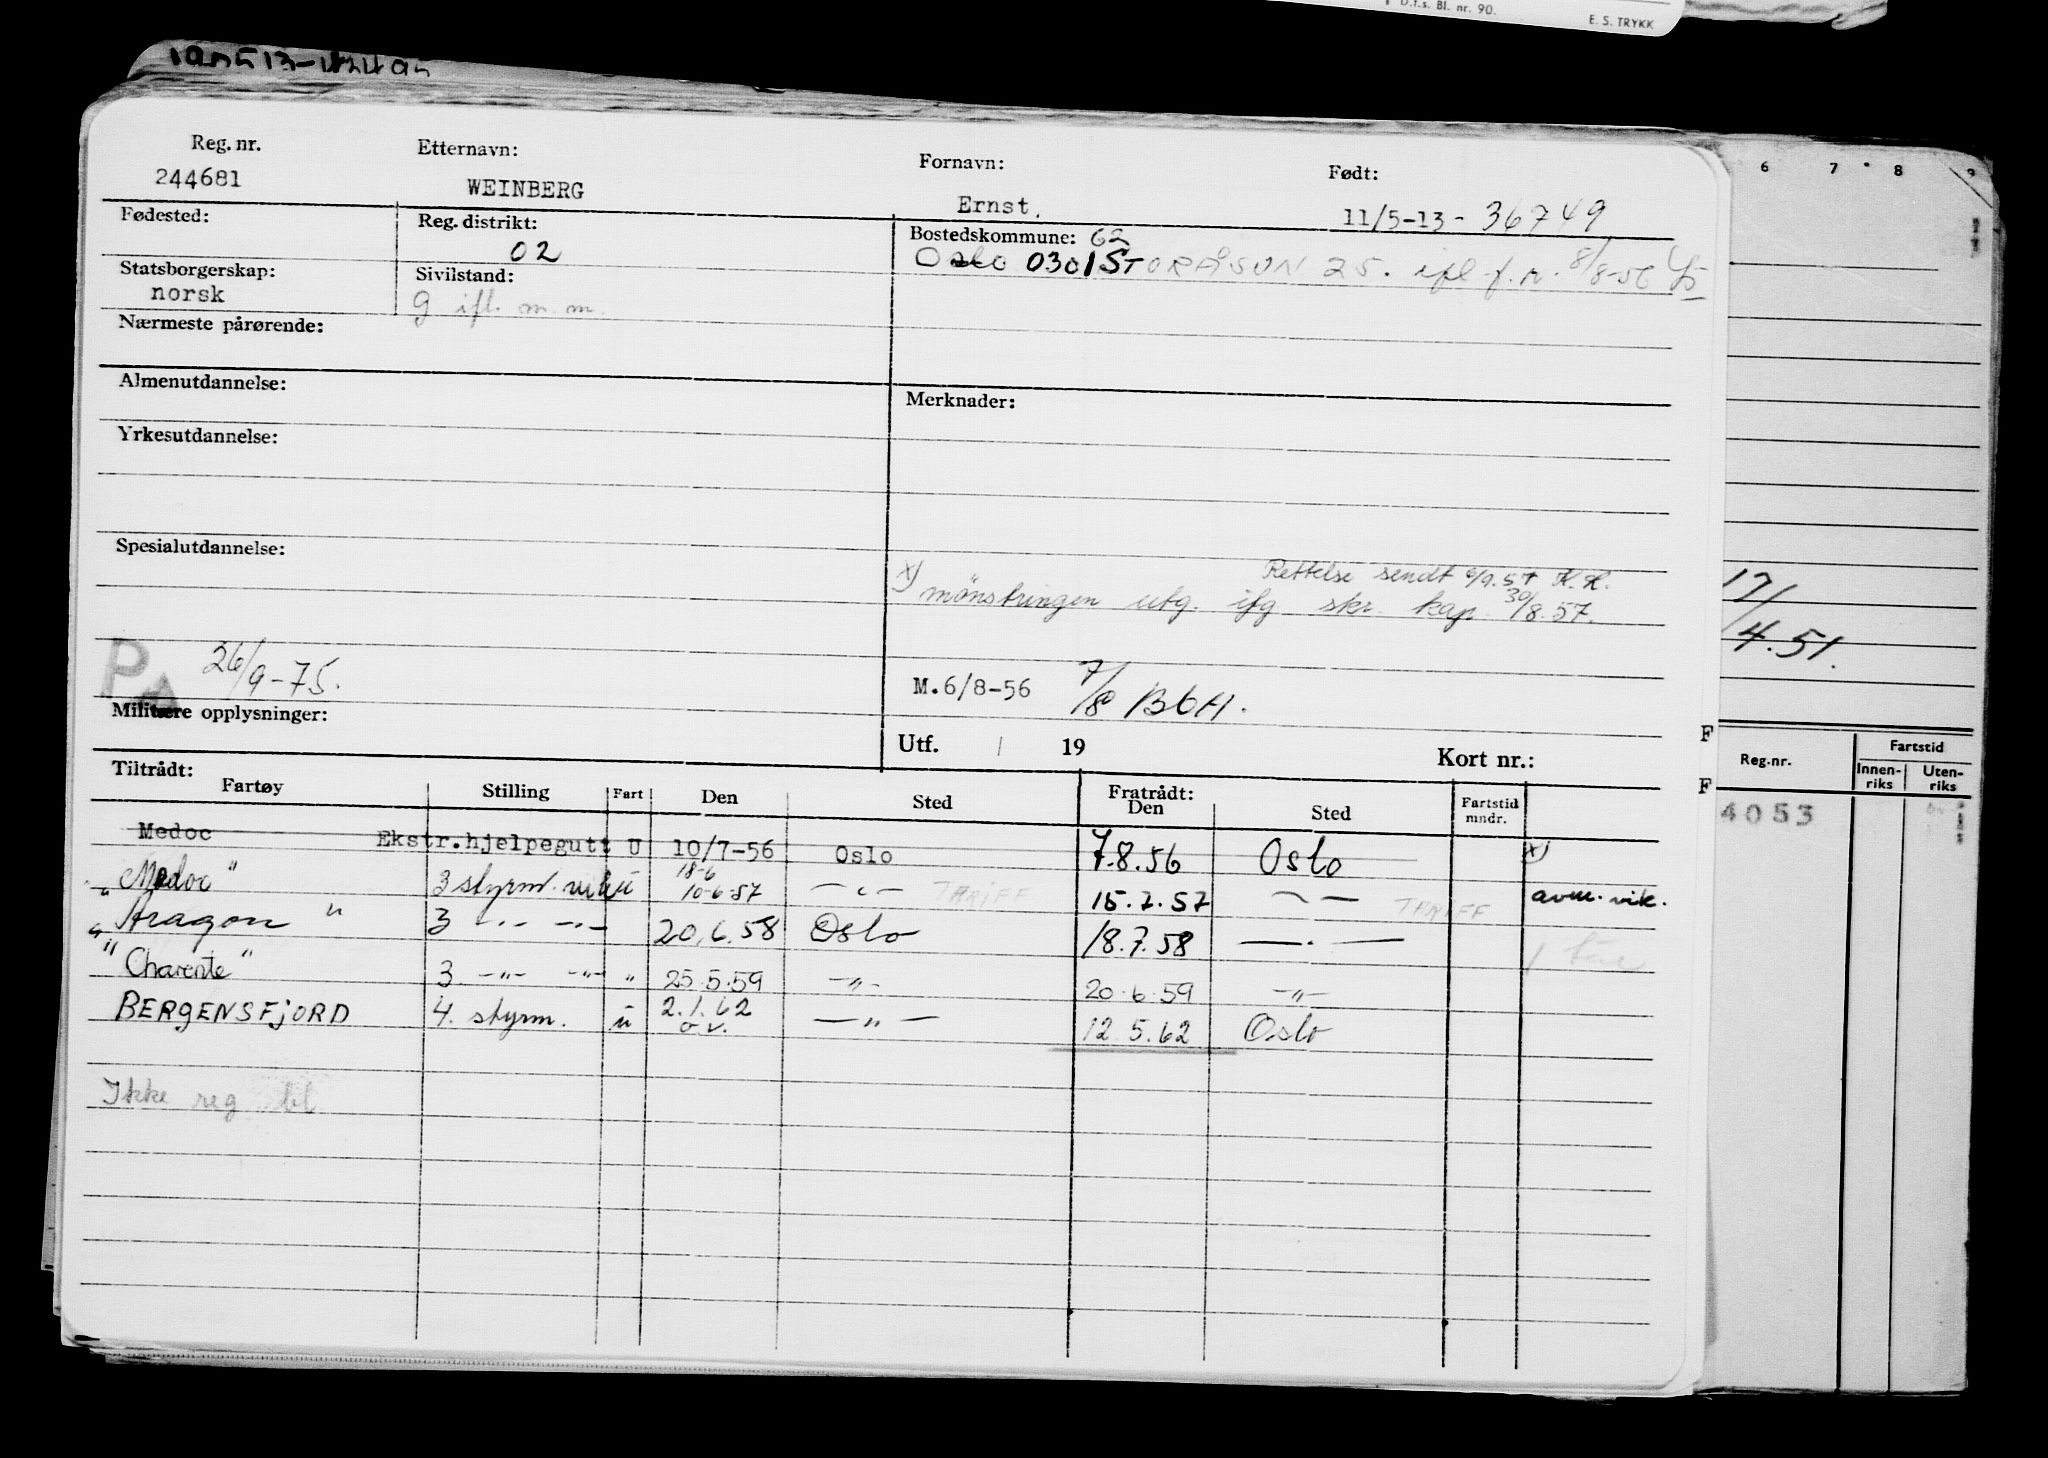 D.f.s. Bl. nr. 90.
E. S. TRYKK
Reg. nr. Etternavn: Fornavn: Født:
244681 WEINBERG Ernst. 11/5-13 - 36749
Fødested: Reg. distrikt: 02 Bostedskommune: 62
Oslo 0301 STORÅSVN 25. ifl. f.r. 8/8-56
Statsborgerskap: norsk Sivilstand: g ifl. m.m.
Nærmeste pårørende:
Almenutdannelse: Merknader:
Yrkesutdannelse:
Spesialutdannelse:
Rettelse sendt 6/9.57 K.H.
x) mönstringen utg. ifg skr. kap. 30/8.57.
PA 26/9-75. M.6/8-56 7/8 BbH.
Militære opplysninger:
Utf. / 19 Kort nr.:
Tiltrådt: Fratrådt:
Fartøy Stilling Fart Den Sted Den Sted Fartstid mndr.
Medoc Ekstr.hjelpegutt U 10/7-56 Oslo 7.8.56 Oslo x)
"Medoc" 3 styrm. u 18-6 10-6-57 — " — TARIFF 15.7.57 — " — TARIFF avm. vik.
"Aragon" 3 — " — — " — 20.6.58 Oslo 18.7.58 — " —
"Charente" 3 — " — — " — " 25.5.59 — " — 20.6.59 — " —
BERGENSFJORD 4. styrm. u 2.1.62 o.v. — " — 12.5.62 Oslo
Ikke reg bl
6 7 8 9
17/4.51.
F
F
Reg.nr. Fartstid
Innen-riks Uten-riks
4053